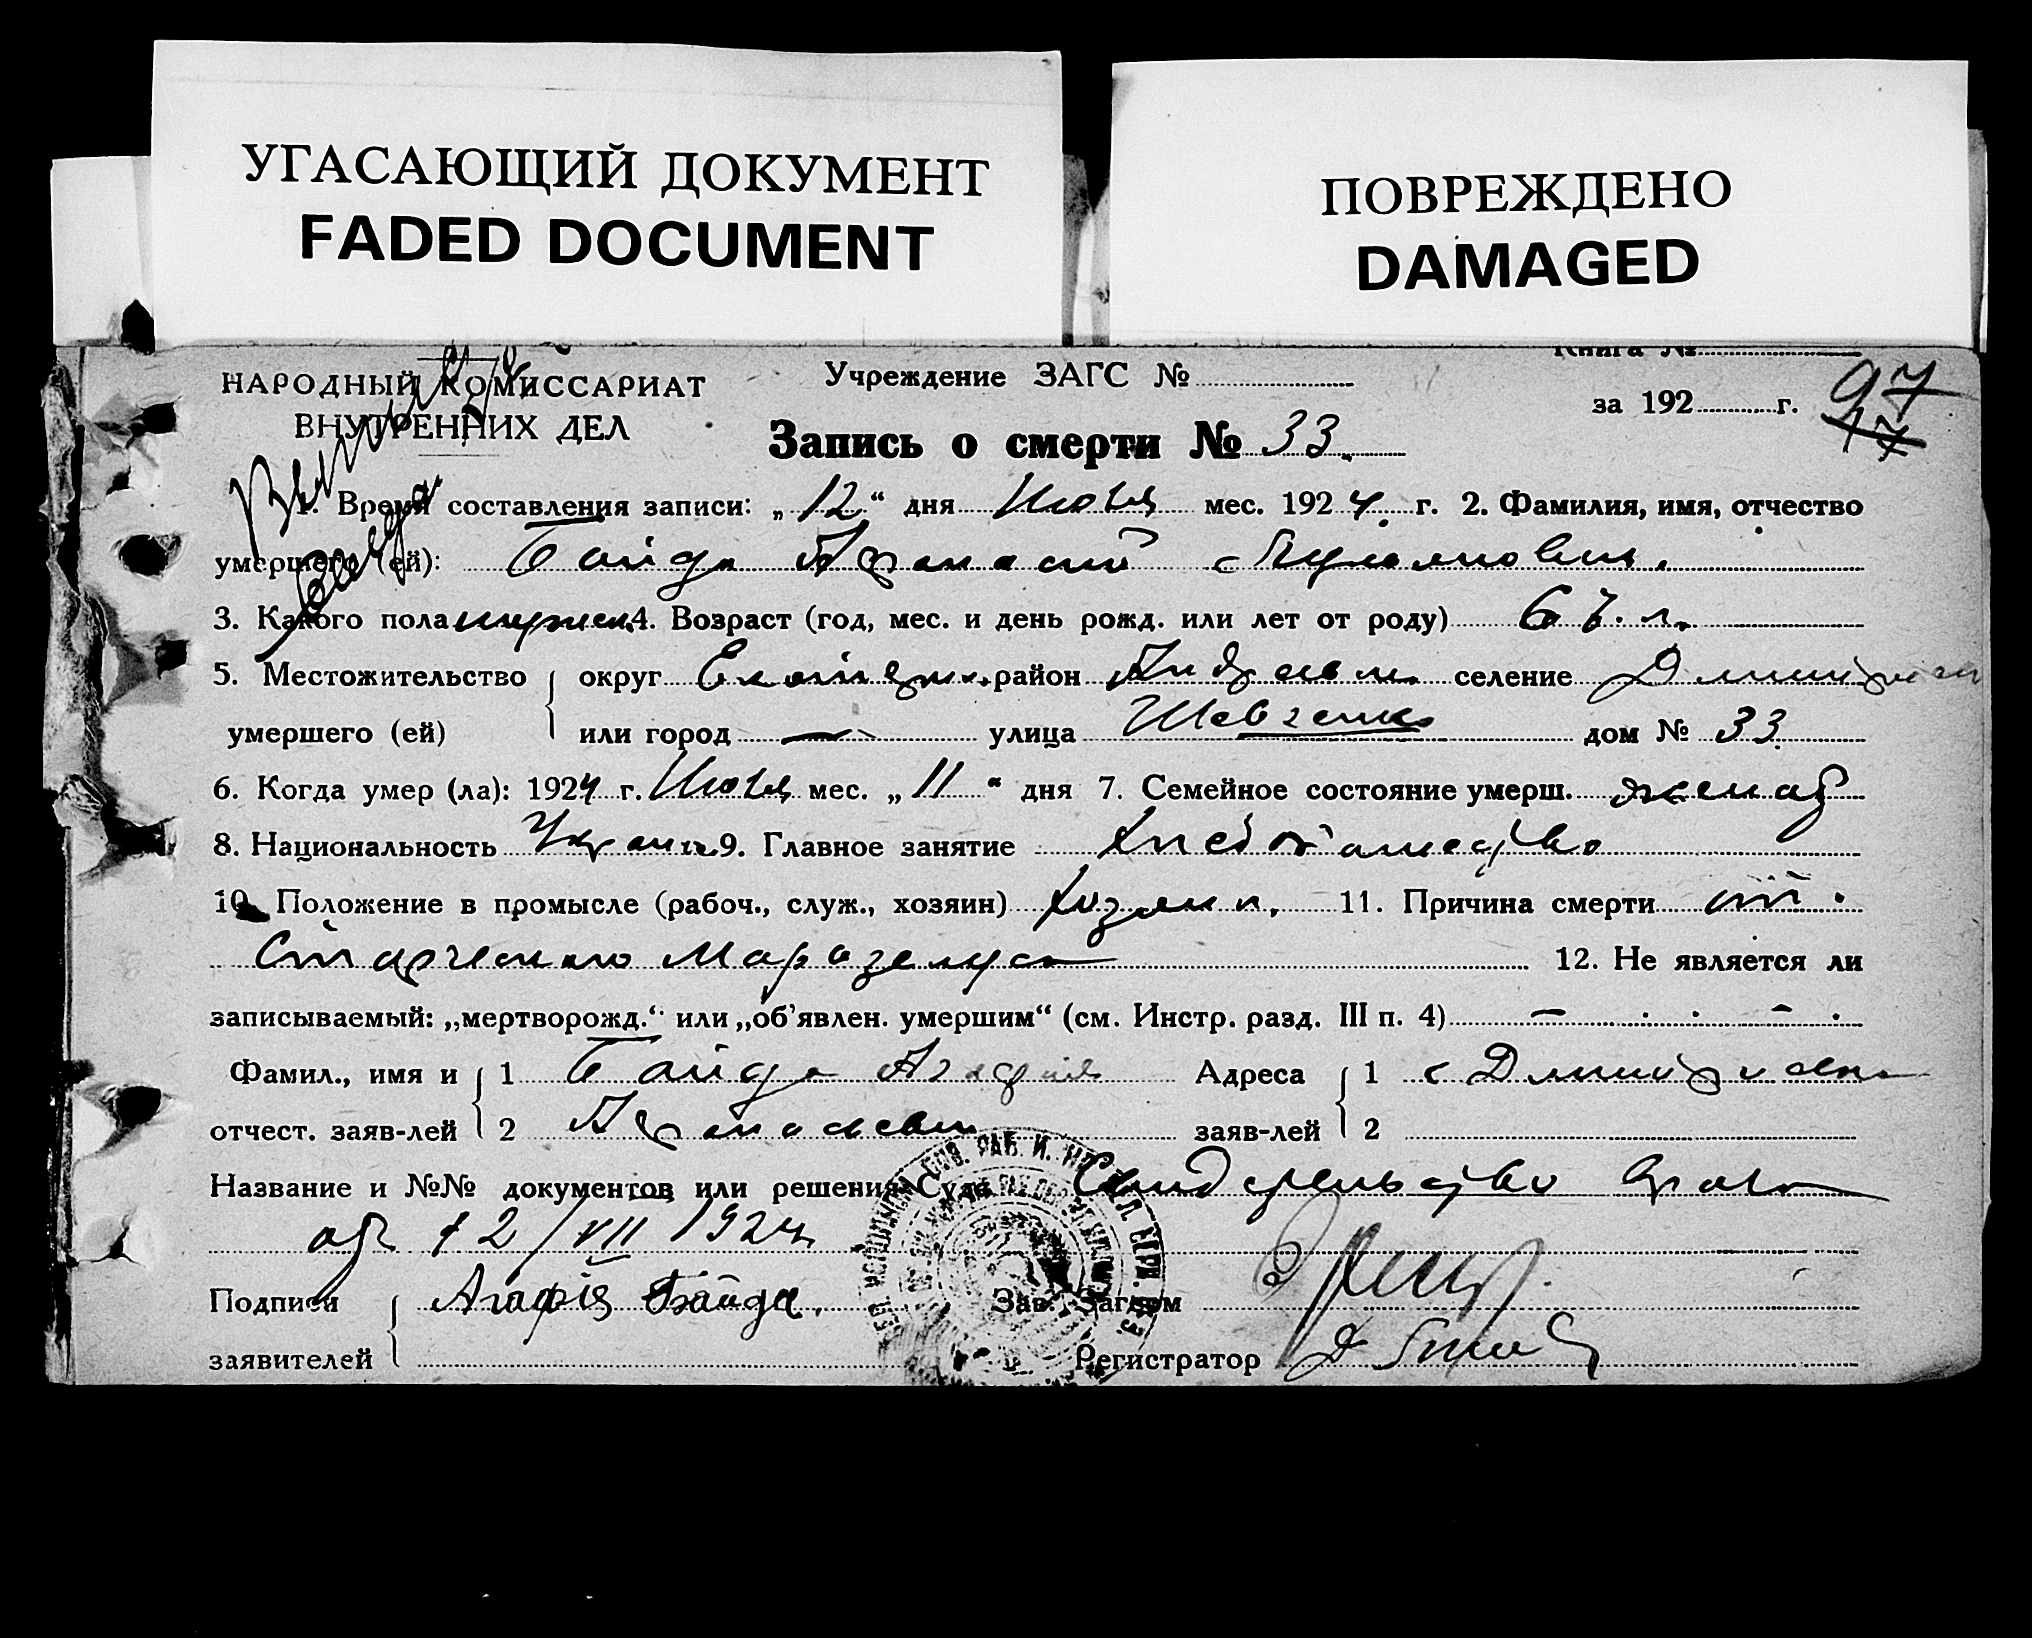 УГАСАЮЩИЙ ДОКУМЕНТ
FADED DOCUMENT
ПОВРЕЖДЕНО
DAMAGED
Книга №
НАРОДНЫЙ КОМИССАРИАТ
ВНУТРЕННИХ ДЕЛ
Учреждение ЗАГС №
за 192 г. 97
17
Запись о смерти № 33.
1. Время составления записи: „12“ дня Июля мес. 1924 г. 2. Фамилия, имя, отчество
умершего (ей): Байда Афанасий
3. Какого пола мужск. 4. Возраст (год, мес. и день рожд. или лет от роду) 67. л.
5. Местожительство округ район селение
умершего (ей) или город — улица Шевченко дом № 33
6. Когда умер (ла): 1924 г. Июля мес. „11“ дня 7. Семейное состояние умерш. женат
8. Национальность Украин. 9. Главное занятие хлебопашество
10. Положение в промысле (рабоч., служ., хозяин) хозяин. 11. Причина смерти от
Старческого Маразмуса 12. Не является ли
записываемый: „мертворожд.“ или „об'явлен. умершим“ (см. Инстр. разд. III п. 4) —
Фамил., имя и 1 Байда Агафия Адреса 1 с
отчест. заяв-лей 2 заяв-лей 2
Название и №№ документов или решения Суда Свидетельство врача
от 12/VII 1924
Подписи Агафія Байда. Зав. Загсом
заявителей Регистратор